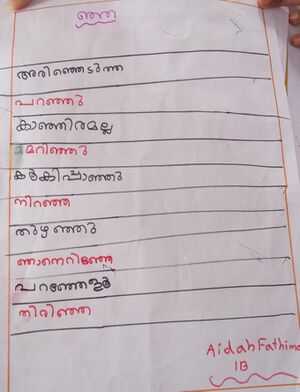 ഞ്ഞ
അരിഞ്ഞെടുത്ത
പറഞ്ഞു
കാഞ്ഞിരമല്ല
മറിഞ്ഞു
കൽകിപ്പാഞ്ഞു
നിറഞ്ഞ
തുഴഞ്ഞു
ഞാനെറിഞ്ഞേ
പറഞ്ഞേള്ളൂ
തിരിഞ്ഞ
Aidah Fathima
1B